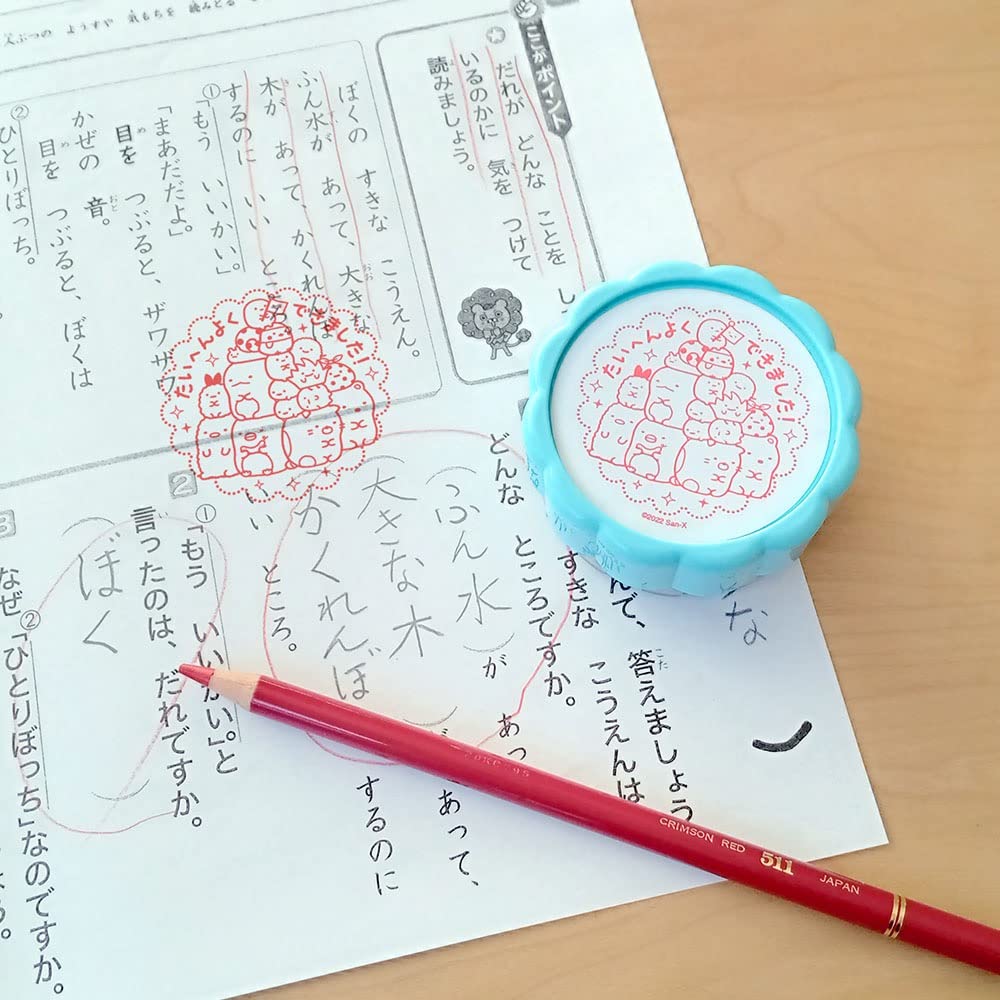 ここがポイント
だれが どんな ことを し
いるのかに 気を つけて
読みましょう。
ぼくの すきな こうえん。
ふん水が あって、大きな
木が あって、かくれんぼ
するのに いい ところ。
①「もう いいかい。」
「まあだだよ。」
目を つぶると、ザワザワ
かぜの 音。
目を つぶると、ぼくは
②ひとりぼっち。
たいへんよく できました!
たいへんよく できました!
©2022 San-X
な
答えましょう
すきな こうえんは
どんな ところですか。
(ふん水)が あっ
大きな木
があって、
かくれんぼ
するのに
いい ところ。
2
①「もう いいかい。」と
言ったのは、だれですか。
(ぼく)
3
なぜ「②ひとりぼっち」なのですか。
CRIMSON RED 511 JAPAN